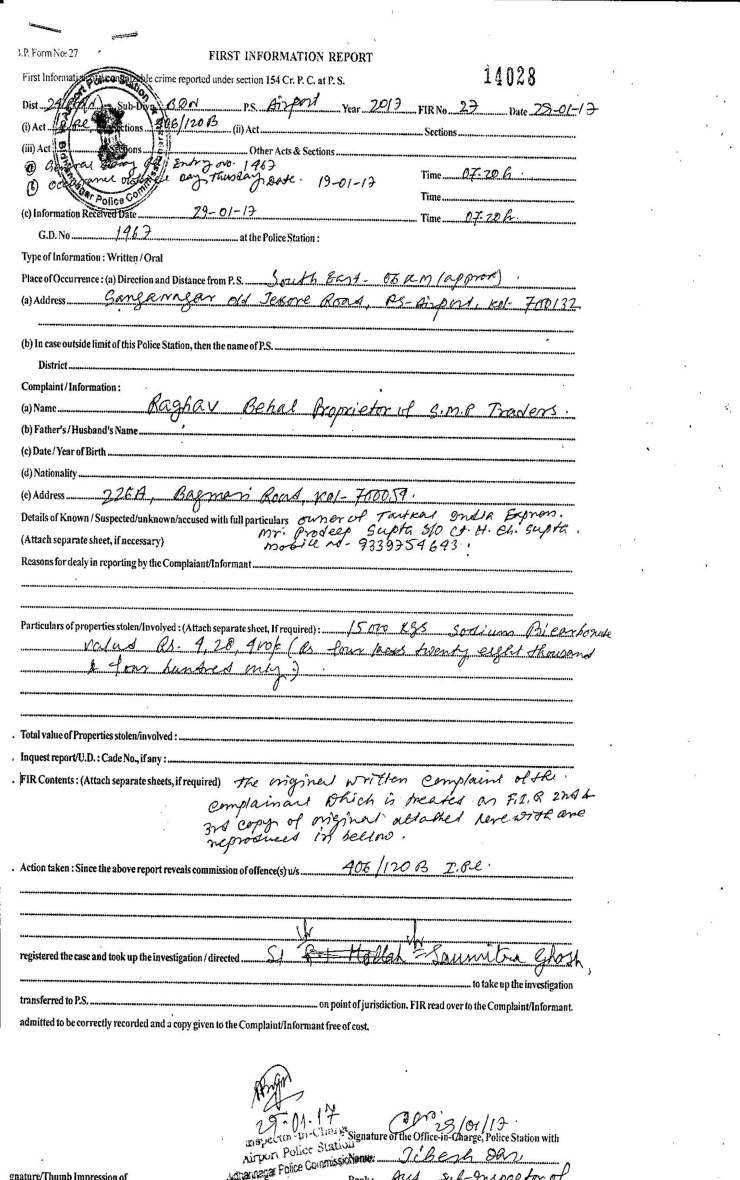 I.P. Form No: 27
FIRST INFORMATION REPORT
First Information of cognizable crime reported under section 154 Cr. P. C. at P. S.
14028
Dist 24 Sub-Divn. BDN P.S. Airport Year 2017 FIR No. 27 Date 29-01-17
(i) Act Sections 406/120B (ii) Act Sections
(iii) Act Sections Other Acts & Sections
(a) General Diary Entry no. 1467 Time 07.20 h.
(b) Occurrence of the Day, Thusday, Date. 19-01-17 Time
(c) Information Received Date 29-01-17 Time 07.20 h.
G.D. No 1467 at the Police Station :
Type of Information : Written / Oral
Place of Occurrence : (a) Direction and Distance from P. S. South East - 06 KM (approx)
(a) Address Ganganagar old Jesore Road, PS- Airport, Kol- 700132
(b) In case outside limit of this Police Station, then the name of P.S.
District
Complaint / Information :
(a) Name Raghav Behal Proprietor of S.M.P Traders.
(b) Father's / Husband's Name
(c) Date / Year of Birth
(d) Nationality
(e) Address 226A, Bagmari Road, Kol- 700054.
Details of Known / Suspected/unknown/accused with full particulars owner of Tatkal India Express.
Mr. Prodeep Gupta S/O Lt. H. Ch. Gupta.
(Attach separate sheet, if necessary) mobile no- 9339754643
Reasons for dealy in reporting by the Complaiant/Informant
Particulars of properties stolen/Involved : (Attach separate sheet, If required) : 15000 kgs sodium Bicarbonate
value Rs. 4,28,400/- (Rs four lacs twenty eight thousand
& four hundred only)
. Total value of Properties stolen/involved :
. Inquest report/U.D. : Cade No., if any :
. FIR Contents : (Attach separate sheets, if required) The original written complaint of the
complainant which is treated as F.I.R 2nd &
3rd copy of original attached herewith are
reproduced in bellow.
. Action taken : Since the above report reveals commission of offence(s) u/s 406/120 B I.P.C.
registered the case and took up the investigation / directed SI Saumitra Ghosh,
to take up the investigation
transferred to P.S. on point of jurisdiction. FIR read over to the Complaint/Informant.
admitted to be correctly recorded and a copy given to the Complaint/Informant free of cost.
29-01-17
29/01/17
Inspector-in-Charge Signature of the Office-in-Charge, Police Station with
Airport Police Station
Police Commissionerate Name: Dibesh
gnature/Thumb Impression of
Rank: Sub-Inspector of